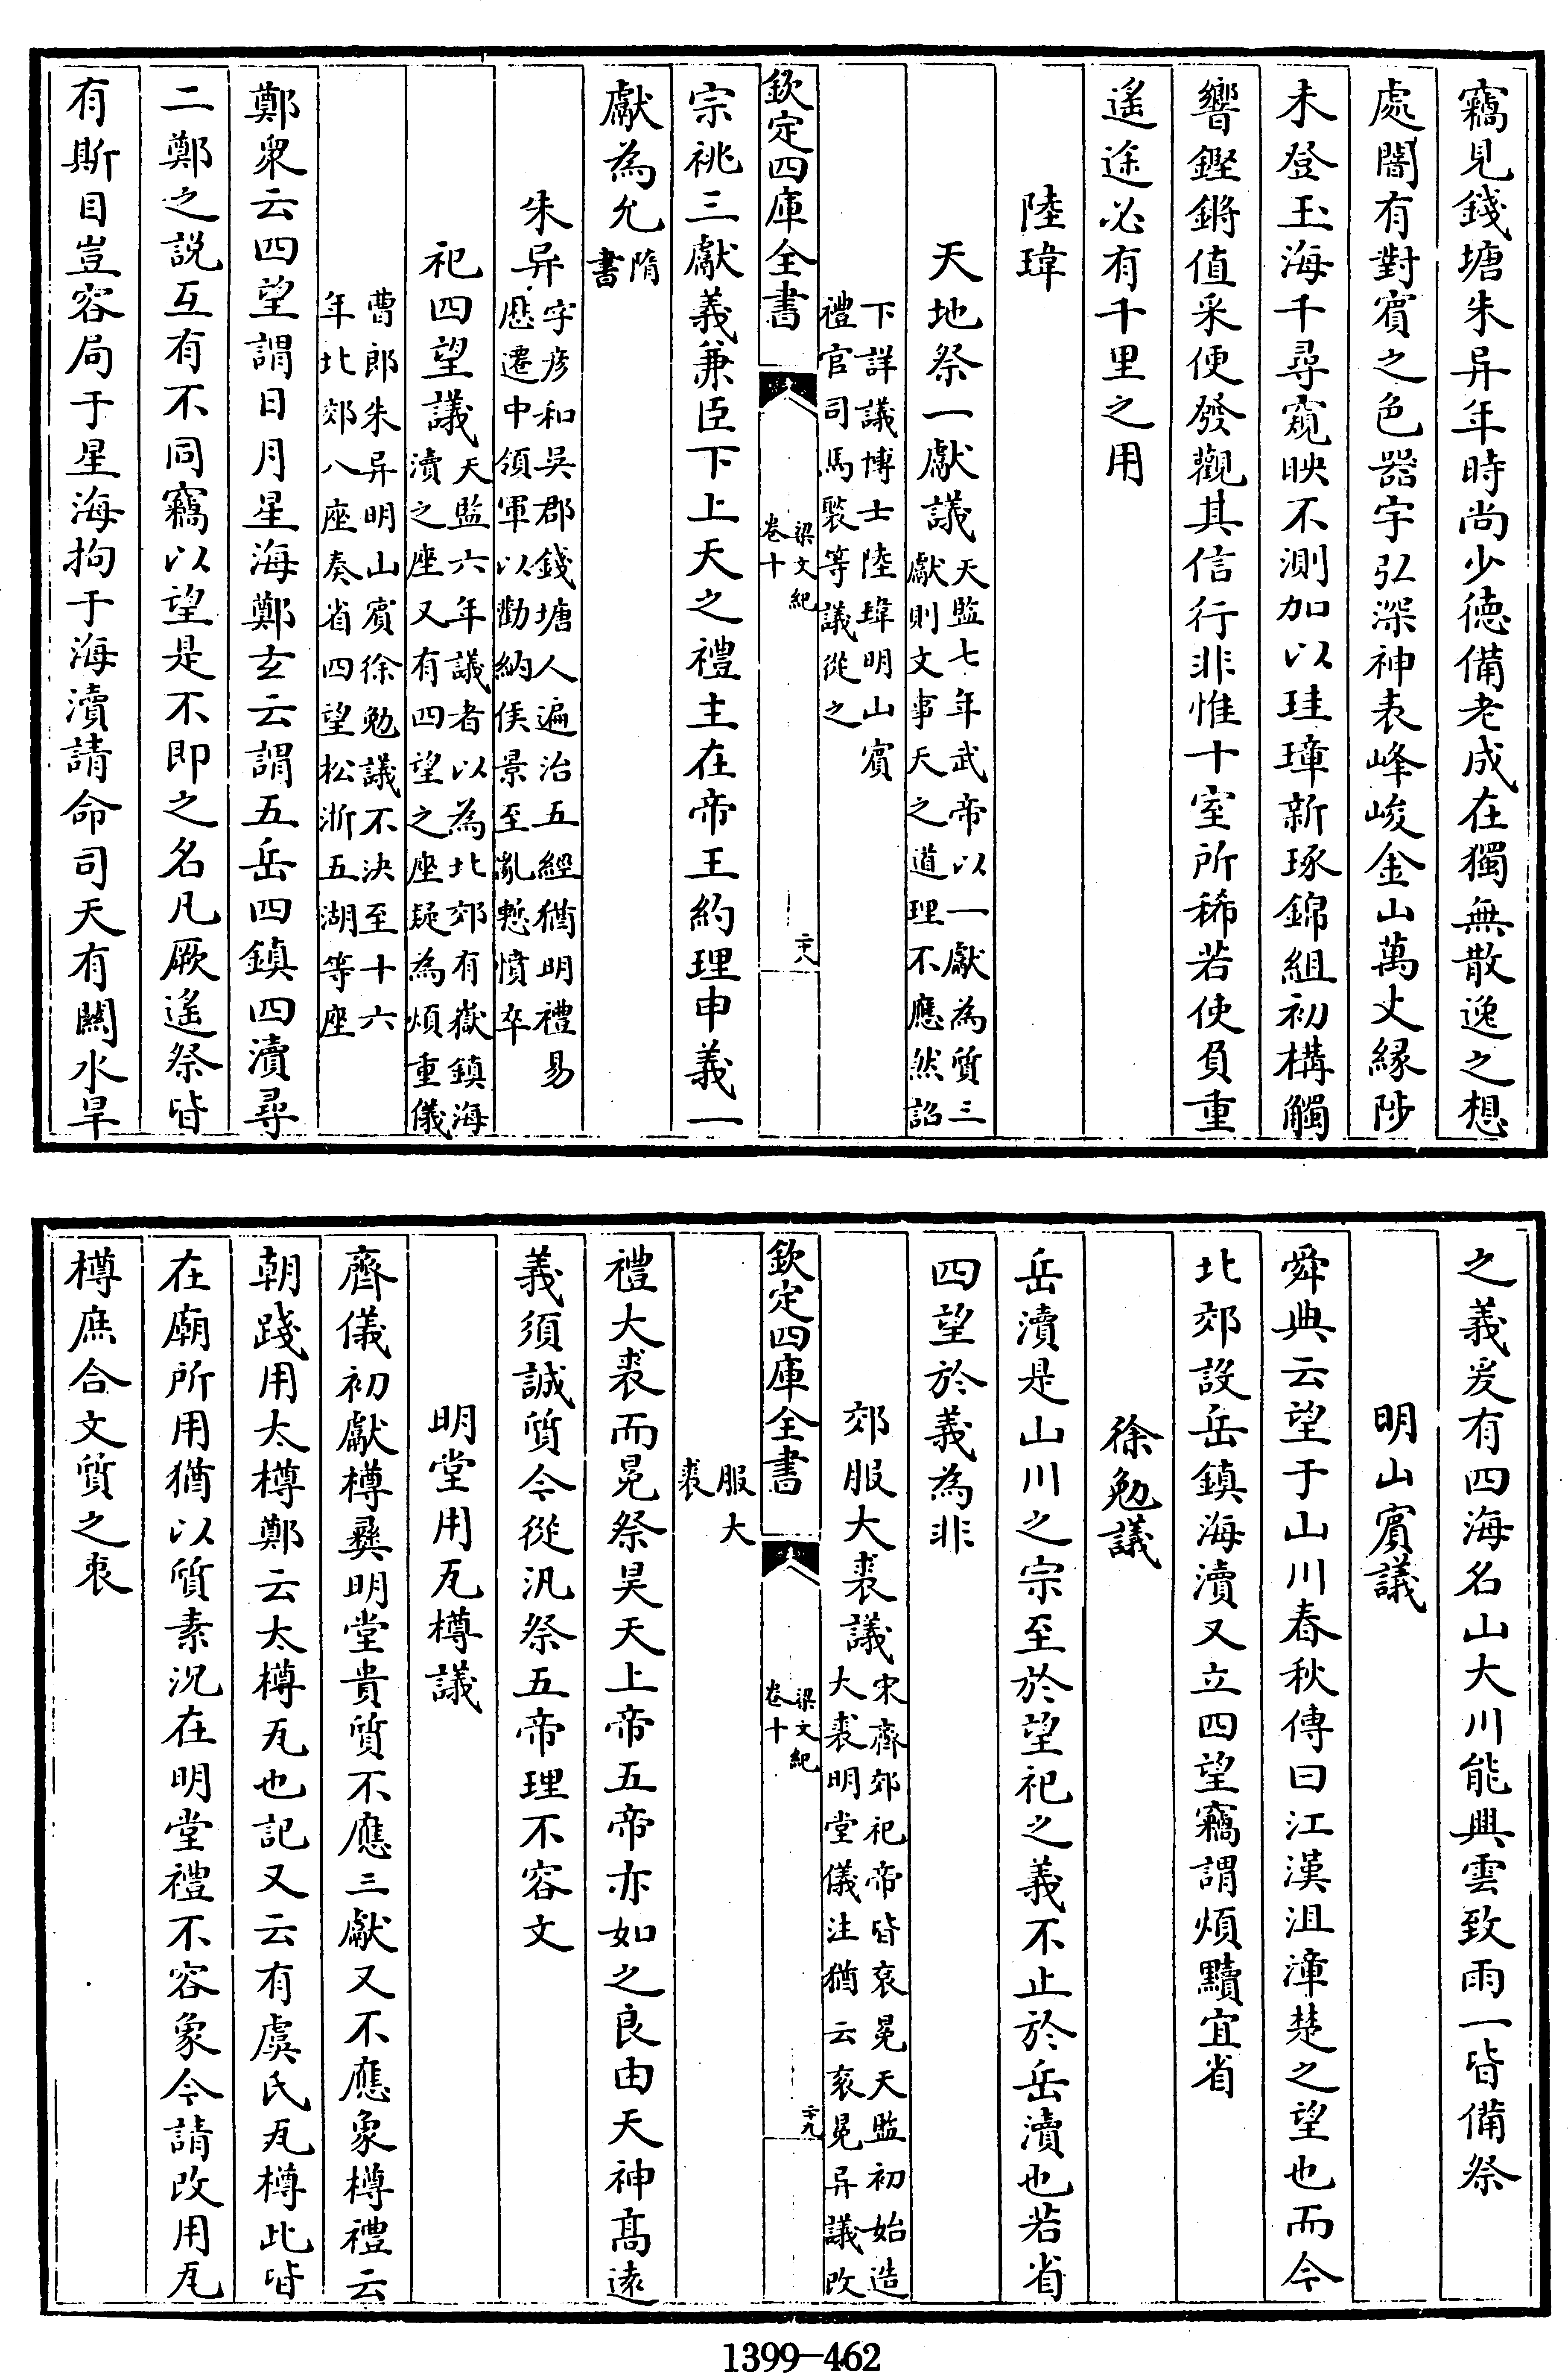 竊見錢塘朱异年時尚少徳備老成在獨無散逸之想
處闇有對賓之色器宇弘深神表峰峻金山萬丈緣陟
未登玉海千尋窺映不測加以珪璋新琢錦組初構觸
響鏗鏘值采便發觀其信行非惟十室所稀若使負重
遙途必有千里之用
陸瑋
天地祭一獻議天監七年武帝以一獻為質三
獻則文事天之道理不應然詔
下詳議博士陸瑋明山賓
禮官司馬褧等議從之
欽定四庫全書
梁文紀
卷十
二十八
宗祧三獻義兼臣下上天之禮主在帝王約理申義一
獻為允隋
書
朱异字彦和吳郡錢塘人遍治五經猶明禮易
歴遷中領軍以勸納侯景至亂慙憤卒
祀四望議天監六年議者以為北郊有嶽鎮海
瀆之座又有四望之座疑為煩重儀
曹郎朱异明山賓徐勉議不決至十六
年北郊八座奏省四望松浙五湖等座
鄭衆云四望謂日月星海鄭玄云謂五岳四鎮四瀆尋
二鄭之説互有不同竊以望是不即之名凡厥遙祭皆
有斯目豈容局于星海拘于海瀆請命司天有闗水旱
之義爰有四海名山大川能興雲致雨一皆備祭
明山賓議
舜典云望于山川春秋傳曰江漢沮漳楚之望也而今
北郊設岳鎮海瀆又立四望竊謂煩黷宜省
徐勉議
岳瀆是山川之宗至於望祀之義不止於岳瀆也若省
四望於義為非
郊服大裘議宋齊郊祀帝皆衮冕天監初始造
大裘明堂儀注猶云衮冕异議改
欽定四庫全書
梁文紀
卷十
二十九
服大
裘
禮大裘而冕祭昊天上帝五帝亦如之良由天神髙逺
義須誠質今從汎祭五帝理不容文
明堂用瓦樽議
齊儀初獻樽彝明堂貴質不應三獻又不應象樽禮云
朝踐用太樽鄭云太樽瓦也記又云有虞氏瓦樽此皆
在廟所用猶以質素況在明堂禮不容象今請改用瓦
樽庶合文質之衷
1399-462